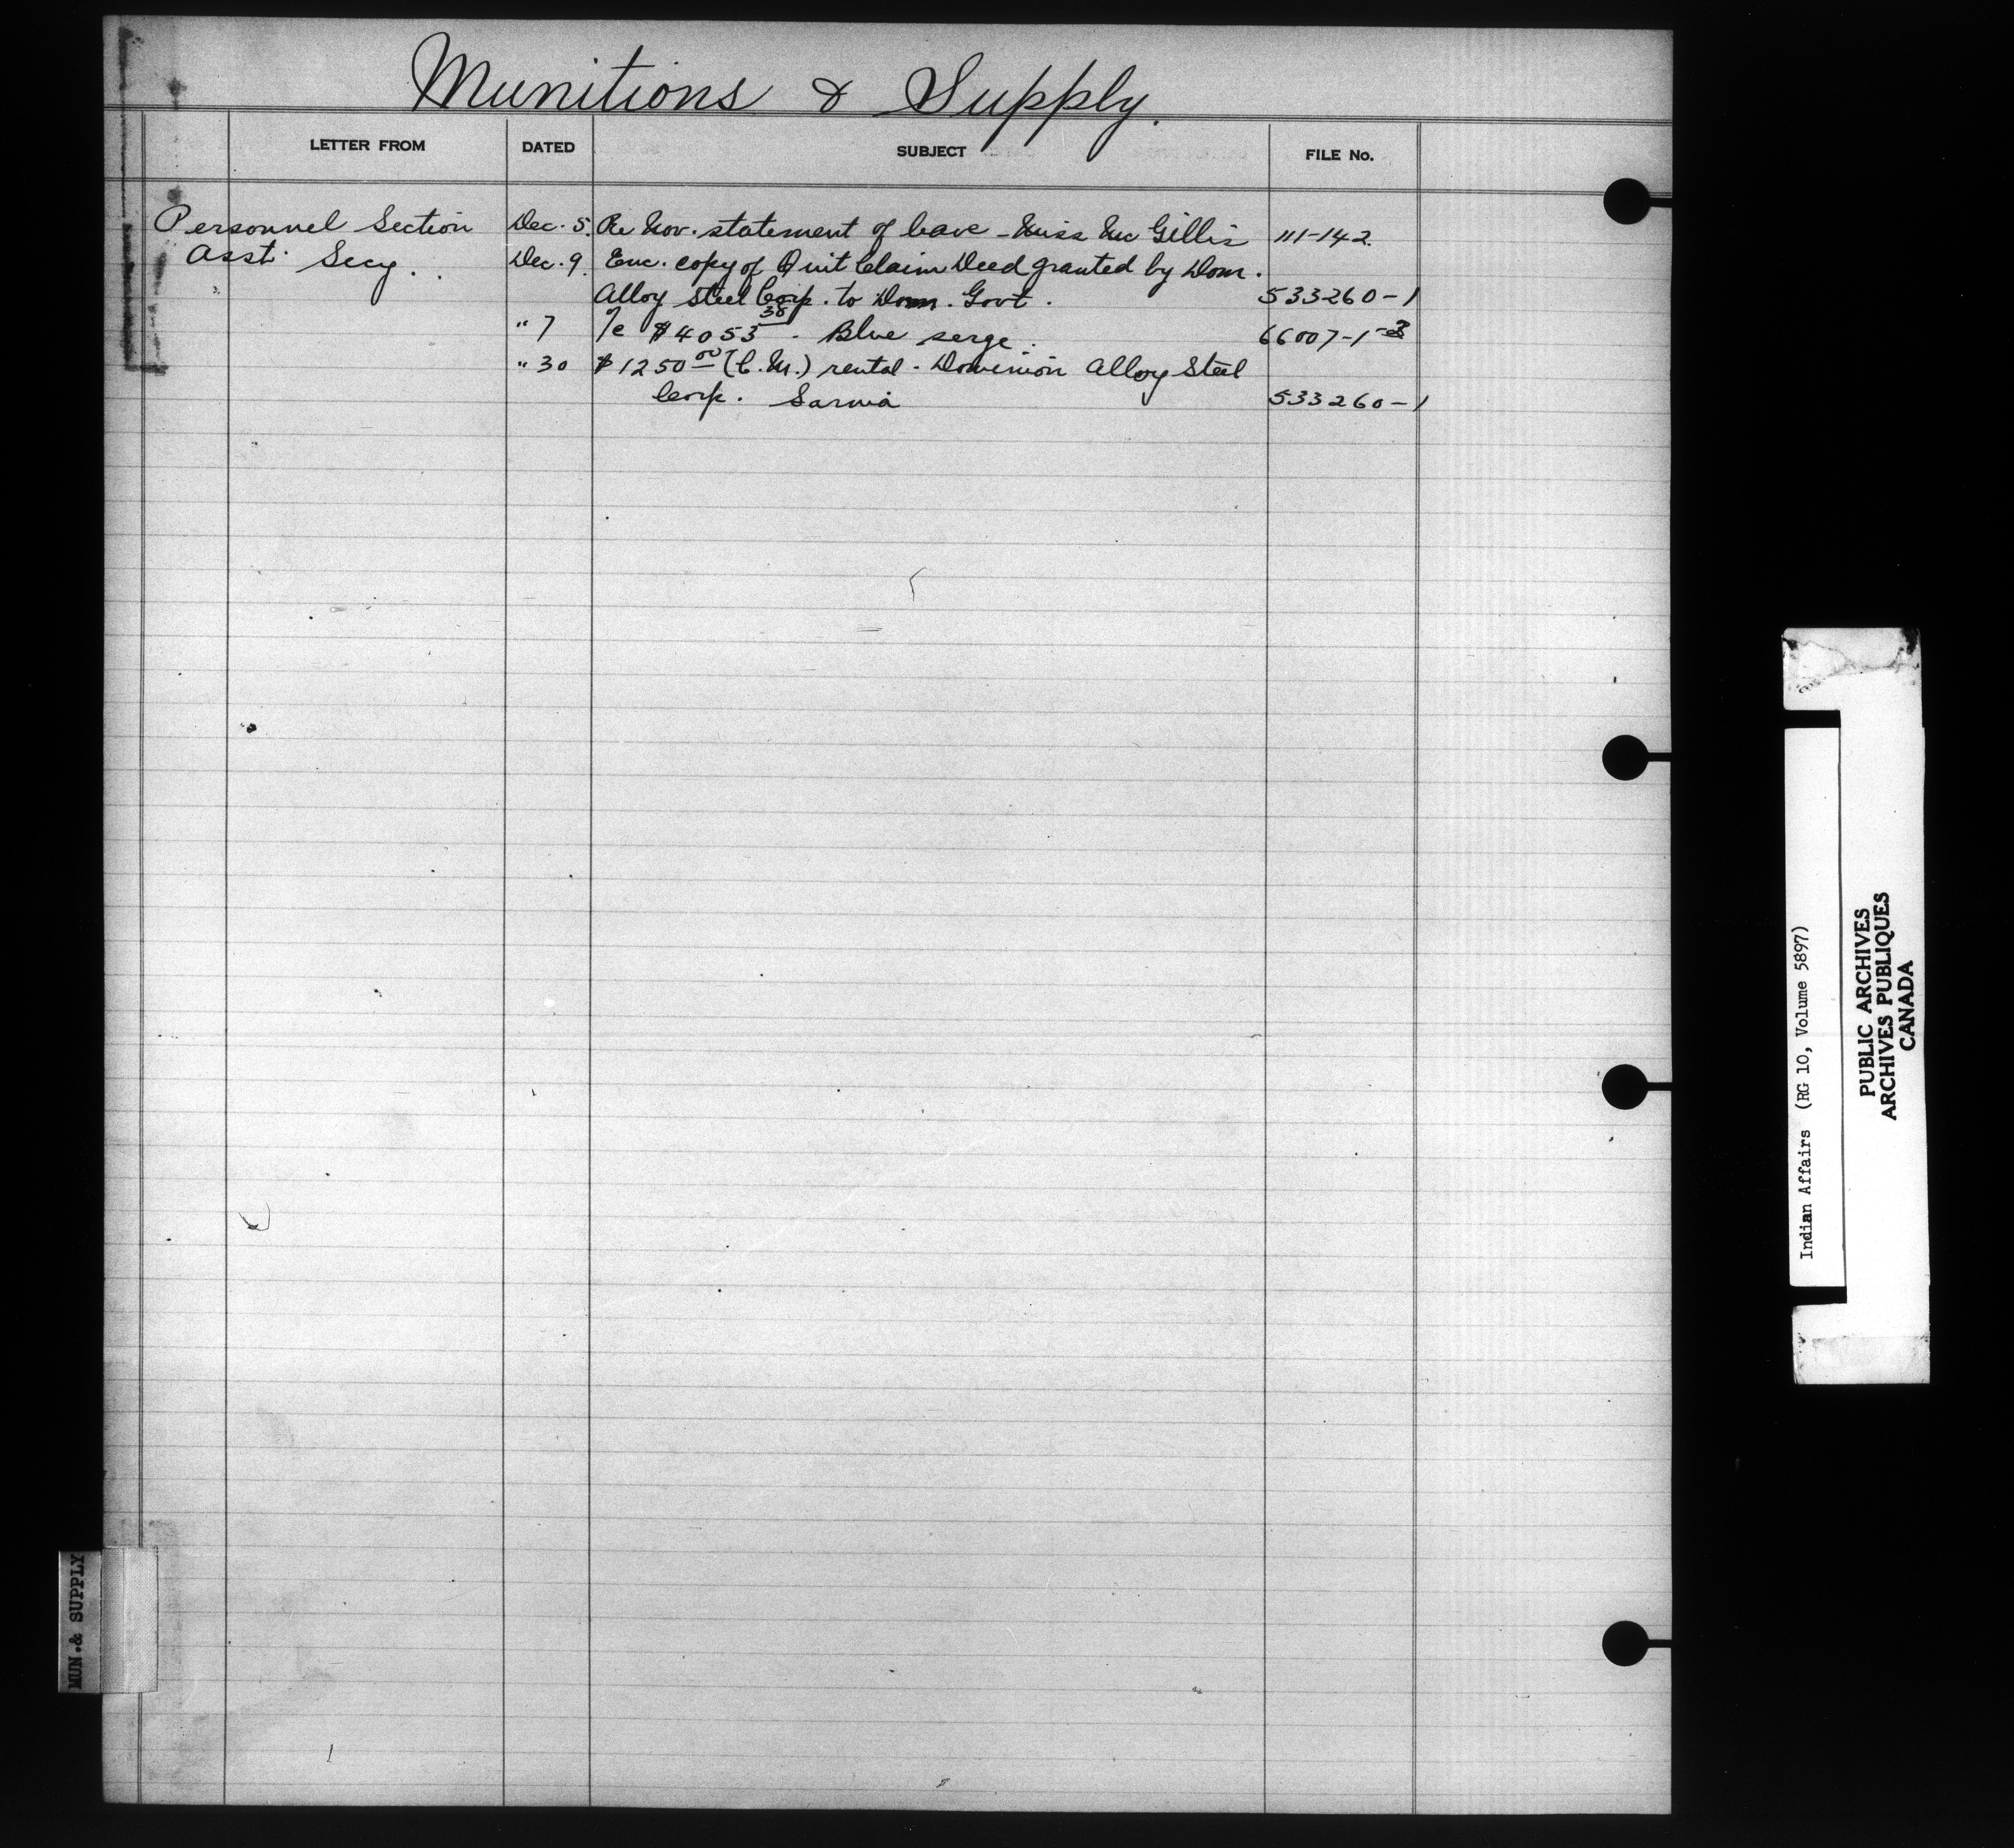 Munitions & Supply.
LETTER FROM DATED SUBJECT FILE No.
Personnel Section Dec. 5. Re Nov. statement of leave - Miss Mc Gillis 111-142
Asst. Secy. Dec. 9. Enc. copy of Quit Claim Deed granted by Dom.
Alloy Steel Corp. to Dom. Govt. 533260-1
" 7 /c $4053 38 - Blue serge. 66007-1-3
" 30 $1250 00 (C.M.) rental - Dominion Alloy Steel
Corp. Sarnia 533260-1
MUN.& SUPPLY
Indian Affairs (RG 10, Volume 5897)
PUBLIC ARCHIVES
ARCHIVES PUBLIQUES
CANADA